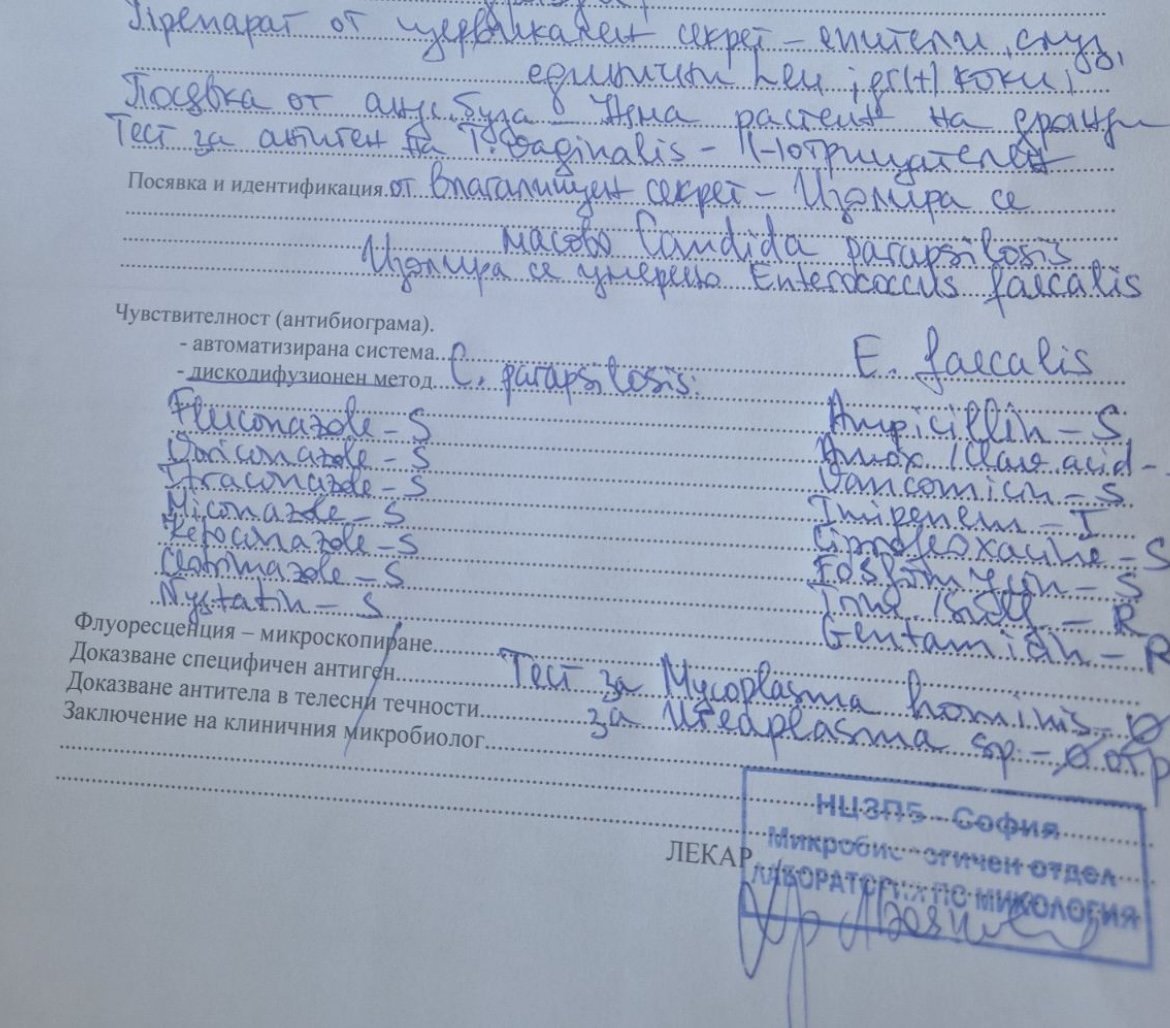 Препарат от цервикален секрет – епители, слуз,
единични Leu; gr(+) коки;
Посявка от анус. буза – Няма растеж на гъби
Тест за антиген на T. vaginalis – (-) отрицателен
Посявка и идентификация от влагалищен секрет – Изолира се
масово Candida parapsilosis
Изолира се умерено Enterococcus faecalis
Чувствителност (антибиограма).
- автоматизирана система
E. faecalis
- дискодифузионен метод C. parapsilosis:
Fluconazole – S
Voriconazole – S
Itraconazole – S
Miconazole – S
Ketoconazole – S
Clotrimazole – S
Nystatin – S
Ampicillin – S
Amox/Clav acid –
Vancomicin – S
Imipenem – I
Ciprofloxacine – S
Fosfomycin – S
– R
Gentamicin – R
Флуоресценция – микроскопиране
Доказване специфичен антиген
Тест за Mycoplasma hominis – Ø
Доказване антитела в телесни течности
за Ureaplasma sp – Ø отр
Заключение на клиничния микробиолог
ЛЕКАР
НЦЗПБ - София
Микробиологичен отдел
ЛАБОРАТОРИЯ ПО МИКОЛОГИЯ